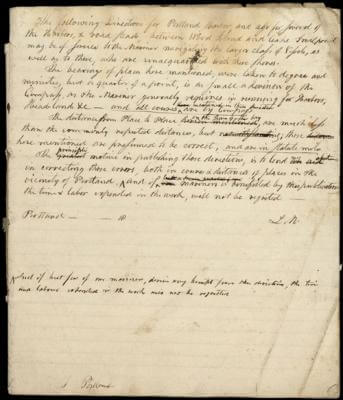 The following directions for Portland Harbor, and also for several of
the Harbors, & road steads between Wood Island and Cape Smallpoint
may be of service to the Mariner navigating the larger class of Vessels, as
well as to those, who are unacquainted with these shores.
The bearings of places here mentioned, were taken to degrees and
minutes, but a quarter of a point, is as small a division of the
Compass, as the Mariner generally requires in running for Harbors,
Headlands &c — and all courses are by Compass
The distances from Place to Place are much less
than the commonly reputed distances, but these
here mentioned are presumed to be correct, and are in statute miles
The principle motive in publishing these directions, is to lend
in correcting those errors, both in courses & distances of places in the
vicinity of Portland. And if mariners is benefited by this publication
the time & labor expended in the work, will not be regretted
Portland — 18 L. M.
And if but few of our mariners, derive any benefit from the directions, the time
and labour extended in the work will not be regretted